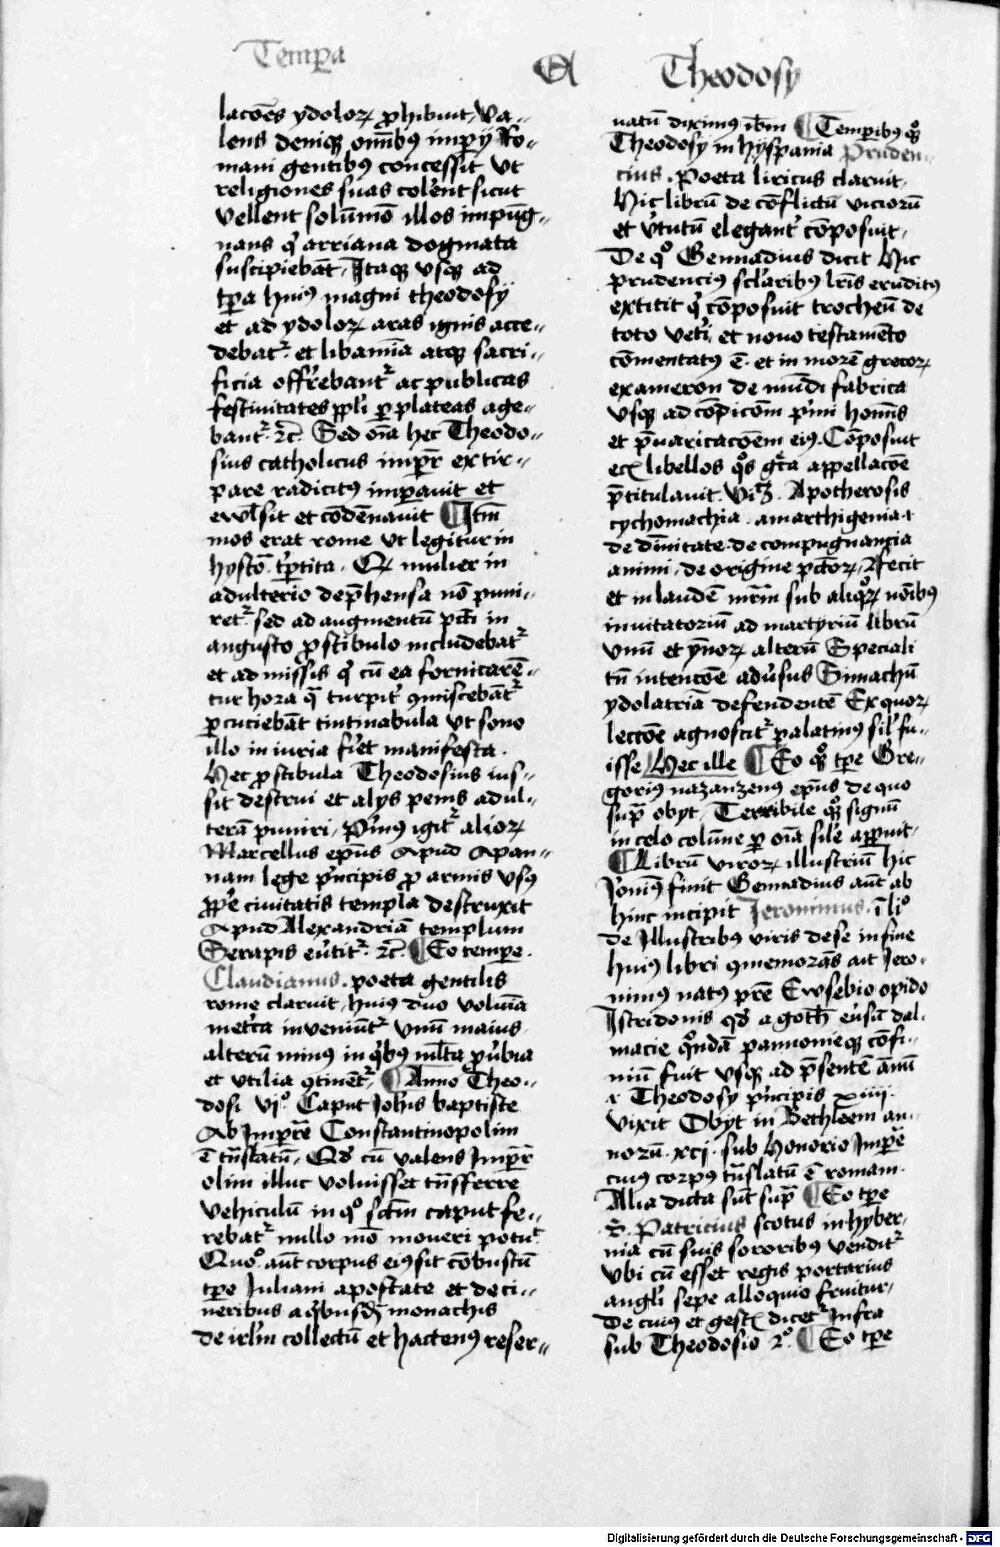 Tempa
A
Theodosy
lacōes ydoloꝝ ꝓhibuit, Va-
lens deniqꝫ om̄ibꝰ impij Ro-
mani gentibꝰ concessit vt
religiones suas colerēt sicut
vellent solūmō illos impūg-
nans q̇ arriana dogmata
suscipiebāt, Itaqꝫ vsqꝫ ad
tꝑa huiꝰ magni theodosij
et ad ydoloꝝ aras ignis acce-
debatᷣ et libamīa atqꝫ sacri-
ficia offerebantᷣ ac publicas
festiuitates ppli ꝑ plateas age-
bantᷣ ⁊c̄. Sed oīa hec Theodo-
sius catholicus impr̄ extir-
pare radicitꝰ imꝑauit et
euulsit et cōdēnauit ¶ Itm̄
mos erat rome vt legitur in
hystō. tꝑtita. Qꝝ mulier in
adulterio dep̄hensa nō puni-
retᷣ sed ad augmentū pcti in
angusto ꝓstibulo includebatᷣ
et admissis q̇ cū ea fornicarē-
tur hora qᷓ turpitᷣ ꝯmiscebātᷣ
ꝑcuciebāt tintinabula vt sono
illo in iuria fieret manifesta.
Hec ꝓstibula Theodosius ius-
sit destrui et alijs penis adul-
terā puniri, Prīꝰ igitᷣ alioꝝ
Marcellus ep̄us apud apan-
nam lege p̄ncipis ꝓ armis vsꝰ
ꝓpe ciuitatis templa destruxit
apud Alexandriā templum
Serapis eūtitᷣ ⁊c̄. ¶ Eo tempe.
Claudianus. poeta gentilis
rome claruit, huiꝰ duo volumīa
metrica inueniūtᷣ vnū maius
alterū minꝰ in qⁱbꝰ mlta ꝓūbia
et vtilia ꝯtinētᷣ, ¶ Anno Theo-
dosi vjº Caput Johīs baptiste
Ab Impr̄e Constantinopolim
ē tn̄slatū, Qd̄ cū valens Impr̄
olim illuc voluisset tn̄sferre
vehiculū in qº sctm̄ caput fe-
rebatᷣ nullo mō moueri potuit
Quo aūt corpus eiꝰ sit cōbustū
tꝑe Juliani apostate et de ci-
neribus a qⁱbusdā monachis
de irlm̄ collectū et hactenꝰ reser-
uatū diximꝰ ibm̄ ¶ Temꝑibꝰ qᵒqꝫ
Theodosij in hyspania Pruden-
cius. Poeta liricus claruit,
Hic librū de cōflictū viciorū
et v̓tutū elegantᷣ cōposuit,
De qº Gennadius dicit Hic
prudencius sclaribꝰ lr̄is eruditꝰ
extitit q̇ cōposuit trocheū de
toto vetri et nouo testamēto
cōmentatꝰ ē. et in morē grecoꝝ
exameron de mūdi fabrica
vsqꝫ ad cōdicōm p̄mi homīs
et p̄uaricacōem eiꝰ. Cōposuit
ecī libellos qºs gͣca appellacōe
p̄titulauit. viꝫ. Apotherosis
cychomachia. amarthigenia. i
de diūinitate. de compugnancia
animi. de origine pctōꝝ, Fecit
et in laudē mr̄m sub aliqºꝝ noībꝰ
inuitatoriū ad martyriū librū
vnū et ymnoꝝ alterū Speciali
tn̄ intencōe adūsus Simachū
ydolatriā defendentē Ex quoꝝ
leccōe agnoscitᷣ palatinꝰ sil'r fu-
isse Hec ille ¶ Eo qº tꝑe Gre-
goriꝰ nazanzenꝰ ep̄us de quo
sup̄ obijt, Terribile qº signū
in celo colūne ꝑ oīa sil'e apparuit,
¶ Librū viroꝝ illustriū hic
Jeronimꝰ finit Gennadius aūt ab
hinc incipit Jeronimus. ī liº
de Illustribꝰ viris de se in fine
huiꝰ libri ꝯmemorās ait Jero-
nimus natꝰ pr̄e Ewsebio opido
Istridonis qd̄ a goth̄ eūsū dal-
macie qºndā pannonieqꝫ cōfi-
niū fuit vsqꝫ ad p̄sentē ānū
i Theodosij p̄ncipis xiiii.
vixit Obijt in Bethleem an-
norū. xcj. sub Honorio Impr̄e
cuiꝰ corpꝰ tn̄slatū ē romam.
Alia dicta sūt sup̄ ¶ Eo tꝑe
S. Patricius scotus in hyber-
nia cū suis sororibꝰ venditᷣ
vbi cū esset regis portarius
angli sepe alloquio fruitur,
De cuiꝰ et gestꝭ dicetᷣ Infra
sub Theodosio 2º. ¶ Eo tꝑe
Digitalisierung gefördert durch die Deutsche Forschungsgemeinschaft - DFG